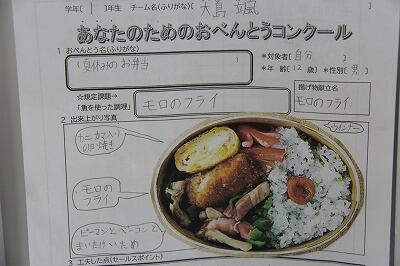 学年( 1 )年生 チーム名(ふりがな)( 大島 颯
あなたのためのおべんとうコンクール
1 おべんとう名(ふりがな)
(夏休みのお弁当 )
*対象者( 自分 )
*年 齢( 12 歳) *性別( 男 )
☆規定課題→
「魚を使った調理」
モロのフライ
揚げ物献立名
モロのフライ
2 出来上がり写真
ウインナー
カニカマ入り
卵焼き
モロの
フライ
ピーマンとベーコンと
まいたけいため
3 工夫した点(セールスポイント)